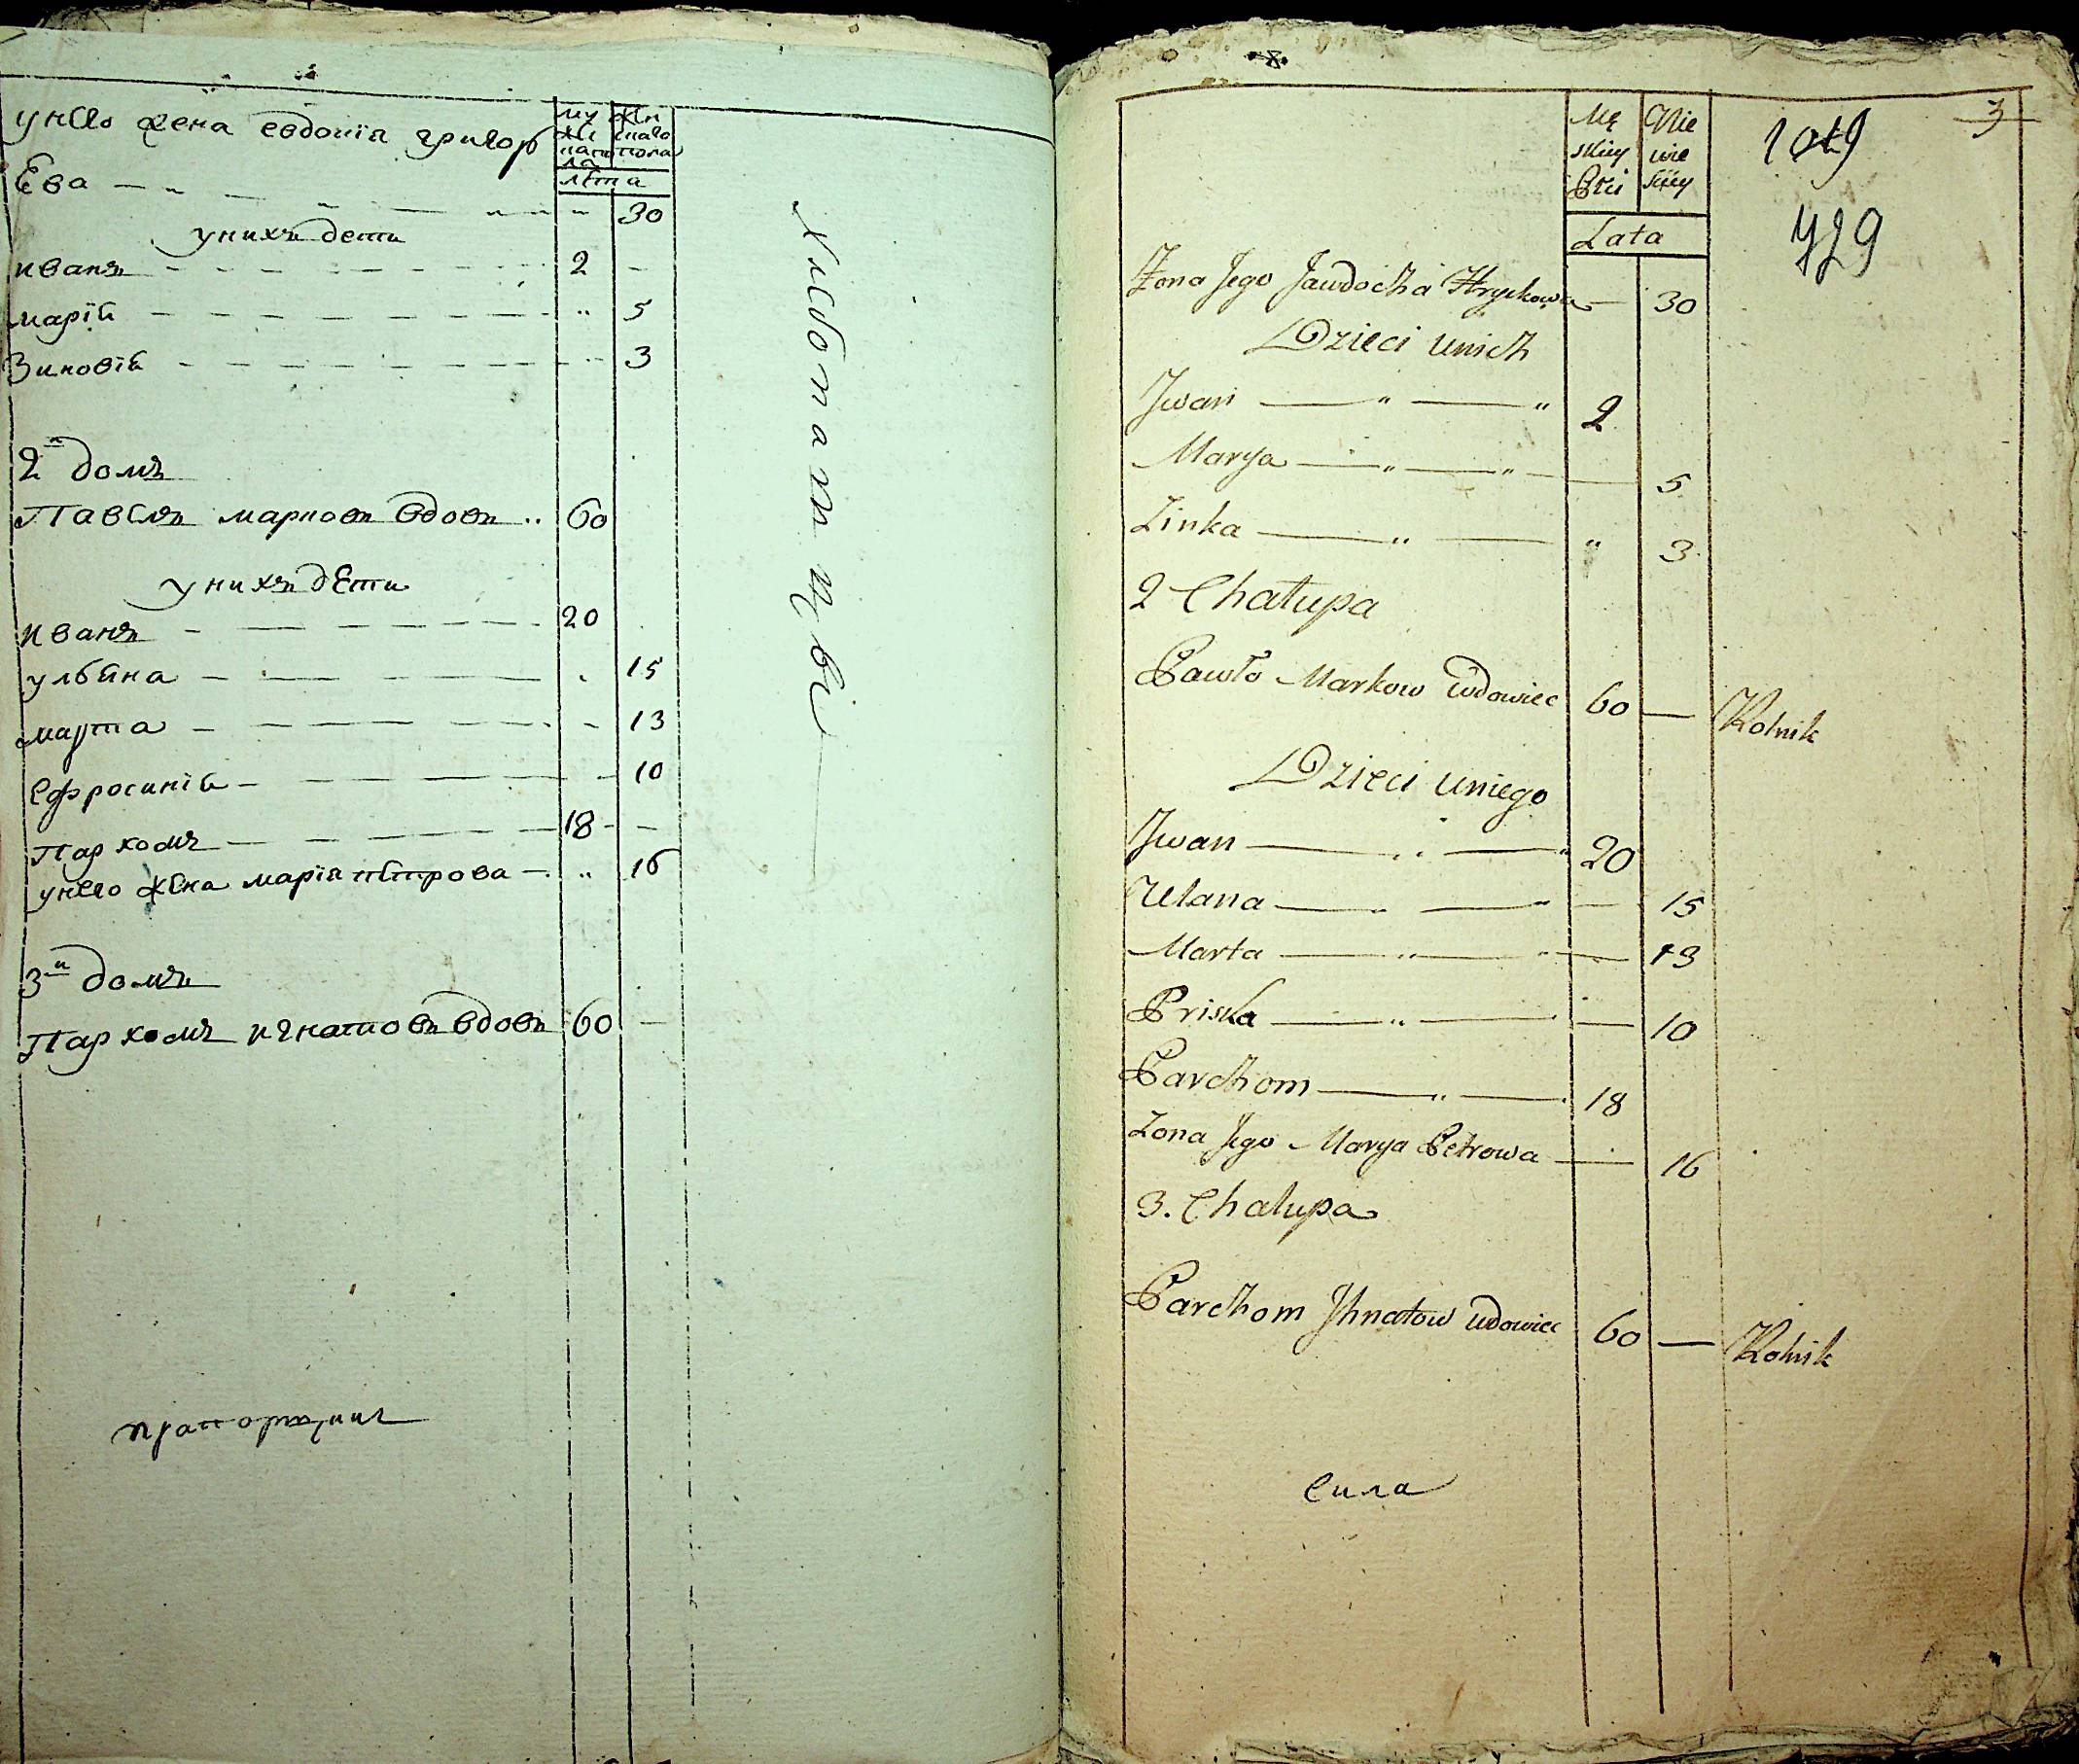 унего жена евдокія григорь
Ева 30
мужска пола
женска пола
лета
у нихъ дети
иванъ 2
марія 5
Зиновія 3
2й домъ
Павелъ марковъ вдовъ 60
у нихъ дети
иванъ 20
ульяна 15
марта 13
ефросинія 10
Пархомъ 18
унего жена марія петрова 16
3й домъ
Пархомъ игнатовъ вдовъ 60
хлебопашцы
прапорщикъ
3
1019
729
Męskiey Płci
Niewieściey
Lata
Żona Jego Jawdocha Hryckowa 30
Dzieci unich
Jwan 2
Marya 5
Zinka 3
2 Chałupa
Pawło Markow wdowiec 60 Rolnik
Dzieci uniego
Jwan 20
Ulana 15
Marta 13
Priska 10
Parchom 18
Zona Jego Marya Petrowa 16
3. Chałupa
Parchom Jhnatow wdowiec 60 Rolnik
Сила